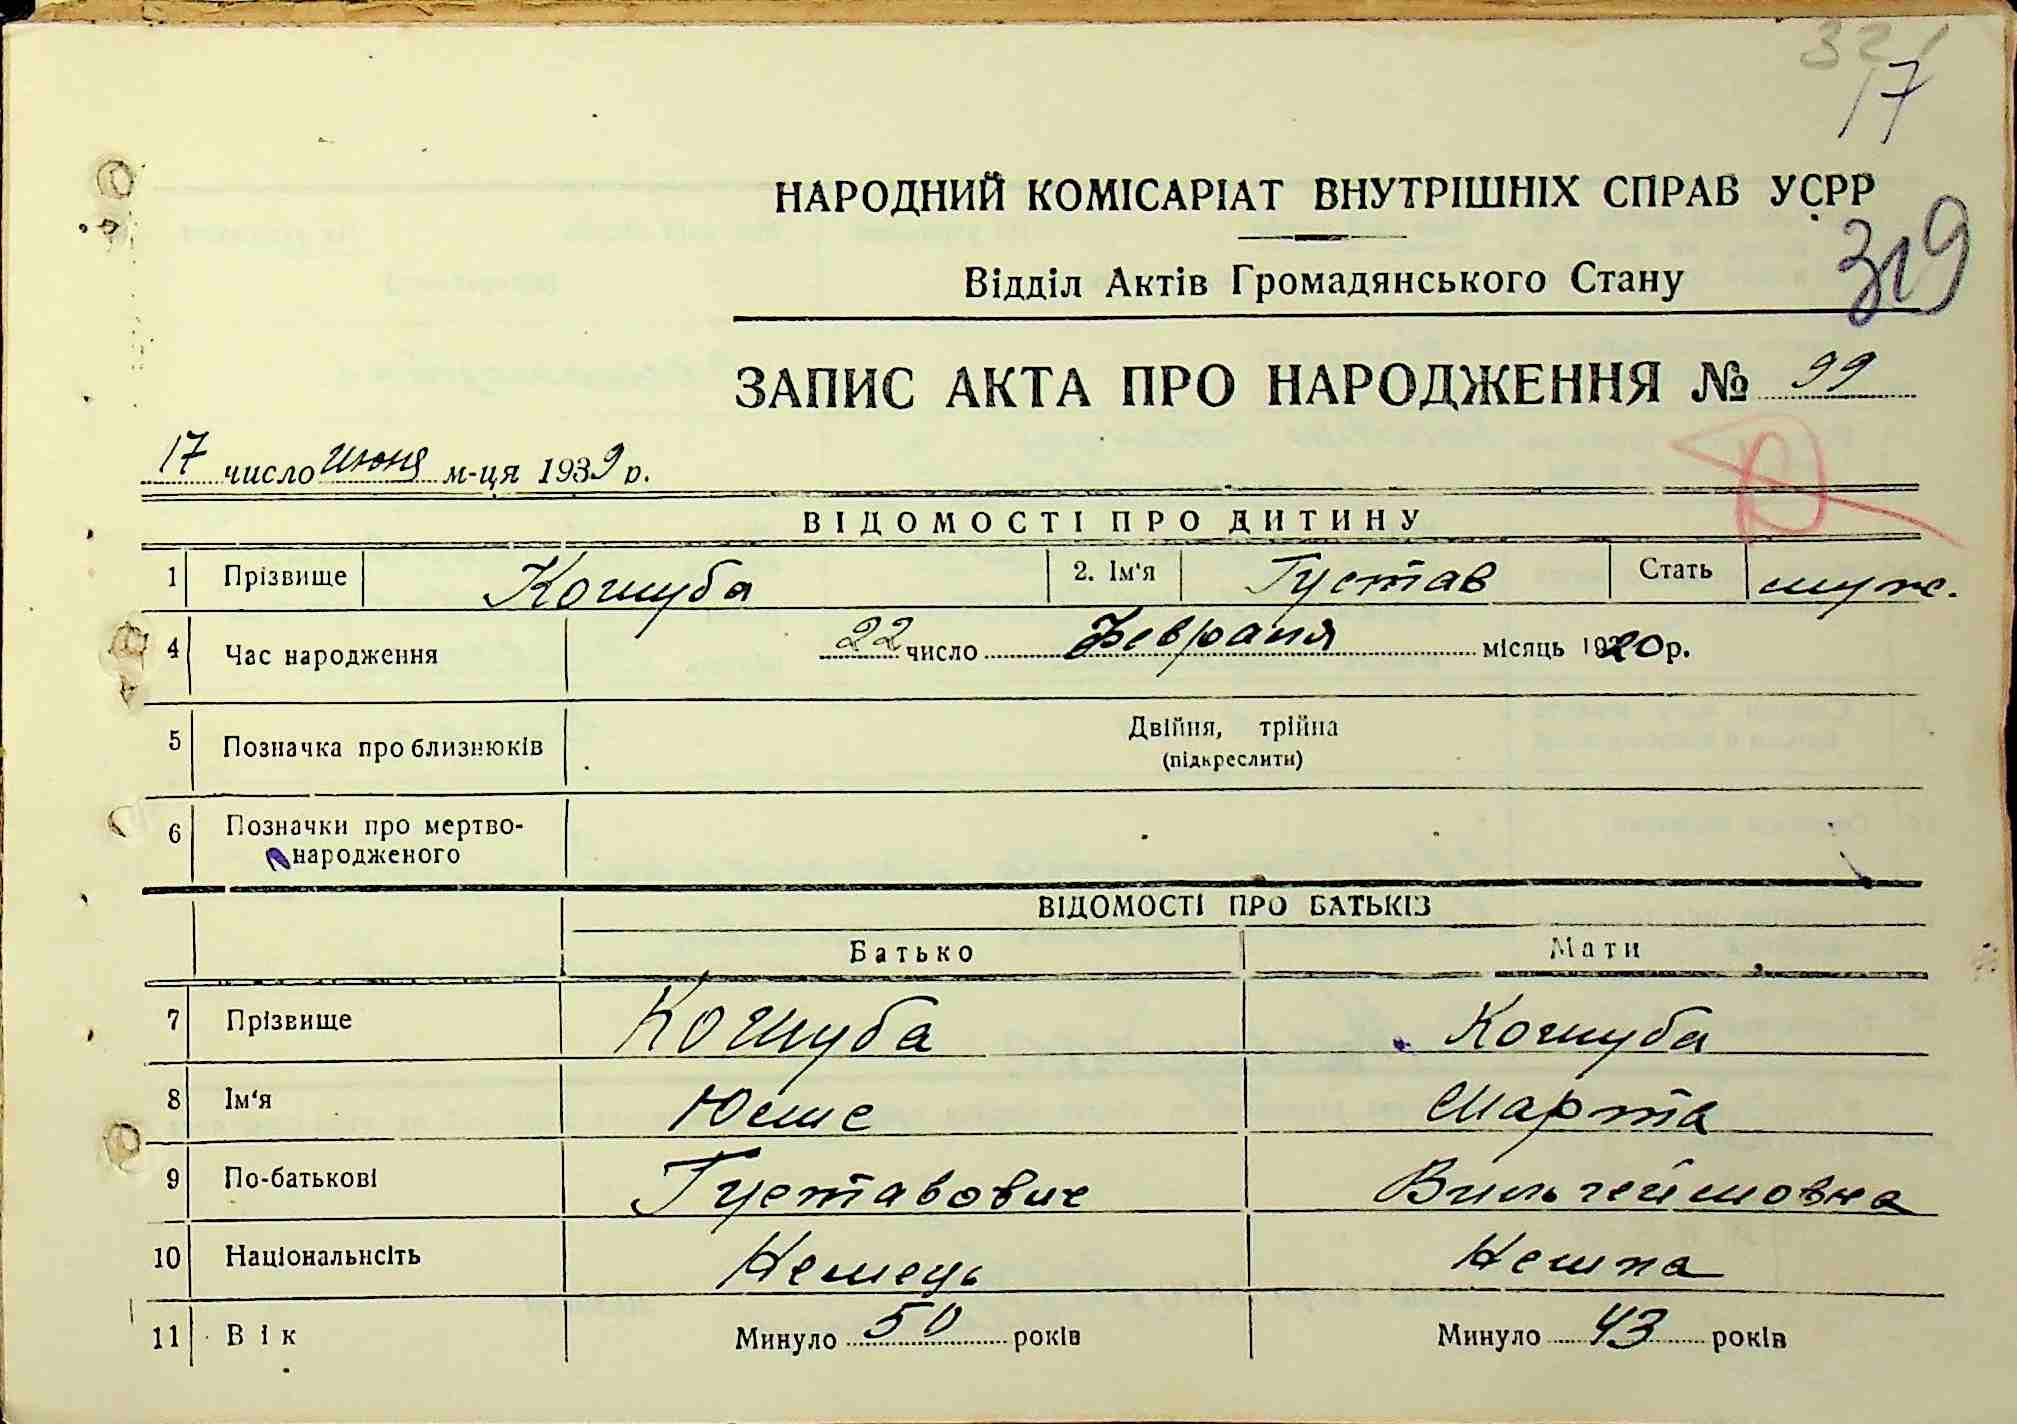 32/
17
НАРОДНИЙ КОМІСАРІАТ ВНУТРІШНІХ СПРАВ УСРР
319
Відділ Актів Громадянського Стану
ЗАПИС АКТА ПРО НАРОДЖЕННЯ № 99
17 число июня м-ця 1939 р.
ВІДОМОСТІ ПРО ДИТИНУ
1 Прізвище Кошуба 2. Ім'я Густав Стать муж.
4 Час народження 22 число Февраля місяць 1920 р.
5 Позначка про близнюків Двійня, трійна
(підкреслити)
6 Позначки про мертво-
народженого
ВІДОМОСТІ ПРО БАТЬКІЗ
Батько Мати
7 Прізвище Кошуба Кошуба
8 Ім'я Марта
9 По-батькові Густавович Вильгеймовна
10 Національнсіть Немець Немка
11 Вік Минуло 50 років Минуло 43 років